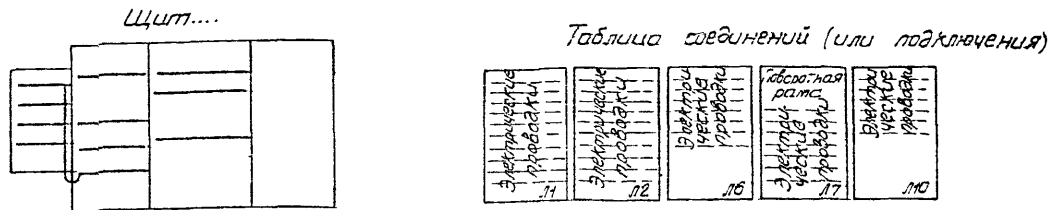 Щит....
Таблица соединений (или подключения)
Электрические
проводки
Л1
Электрические
проводки
Л2
Электри
ческие
проводки
Л6
Поворотная
рама
Электри-
ческие
проводки
Л7
Электри
ческие
проводки
Л10